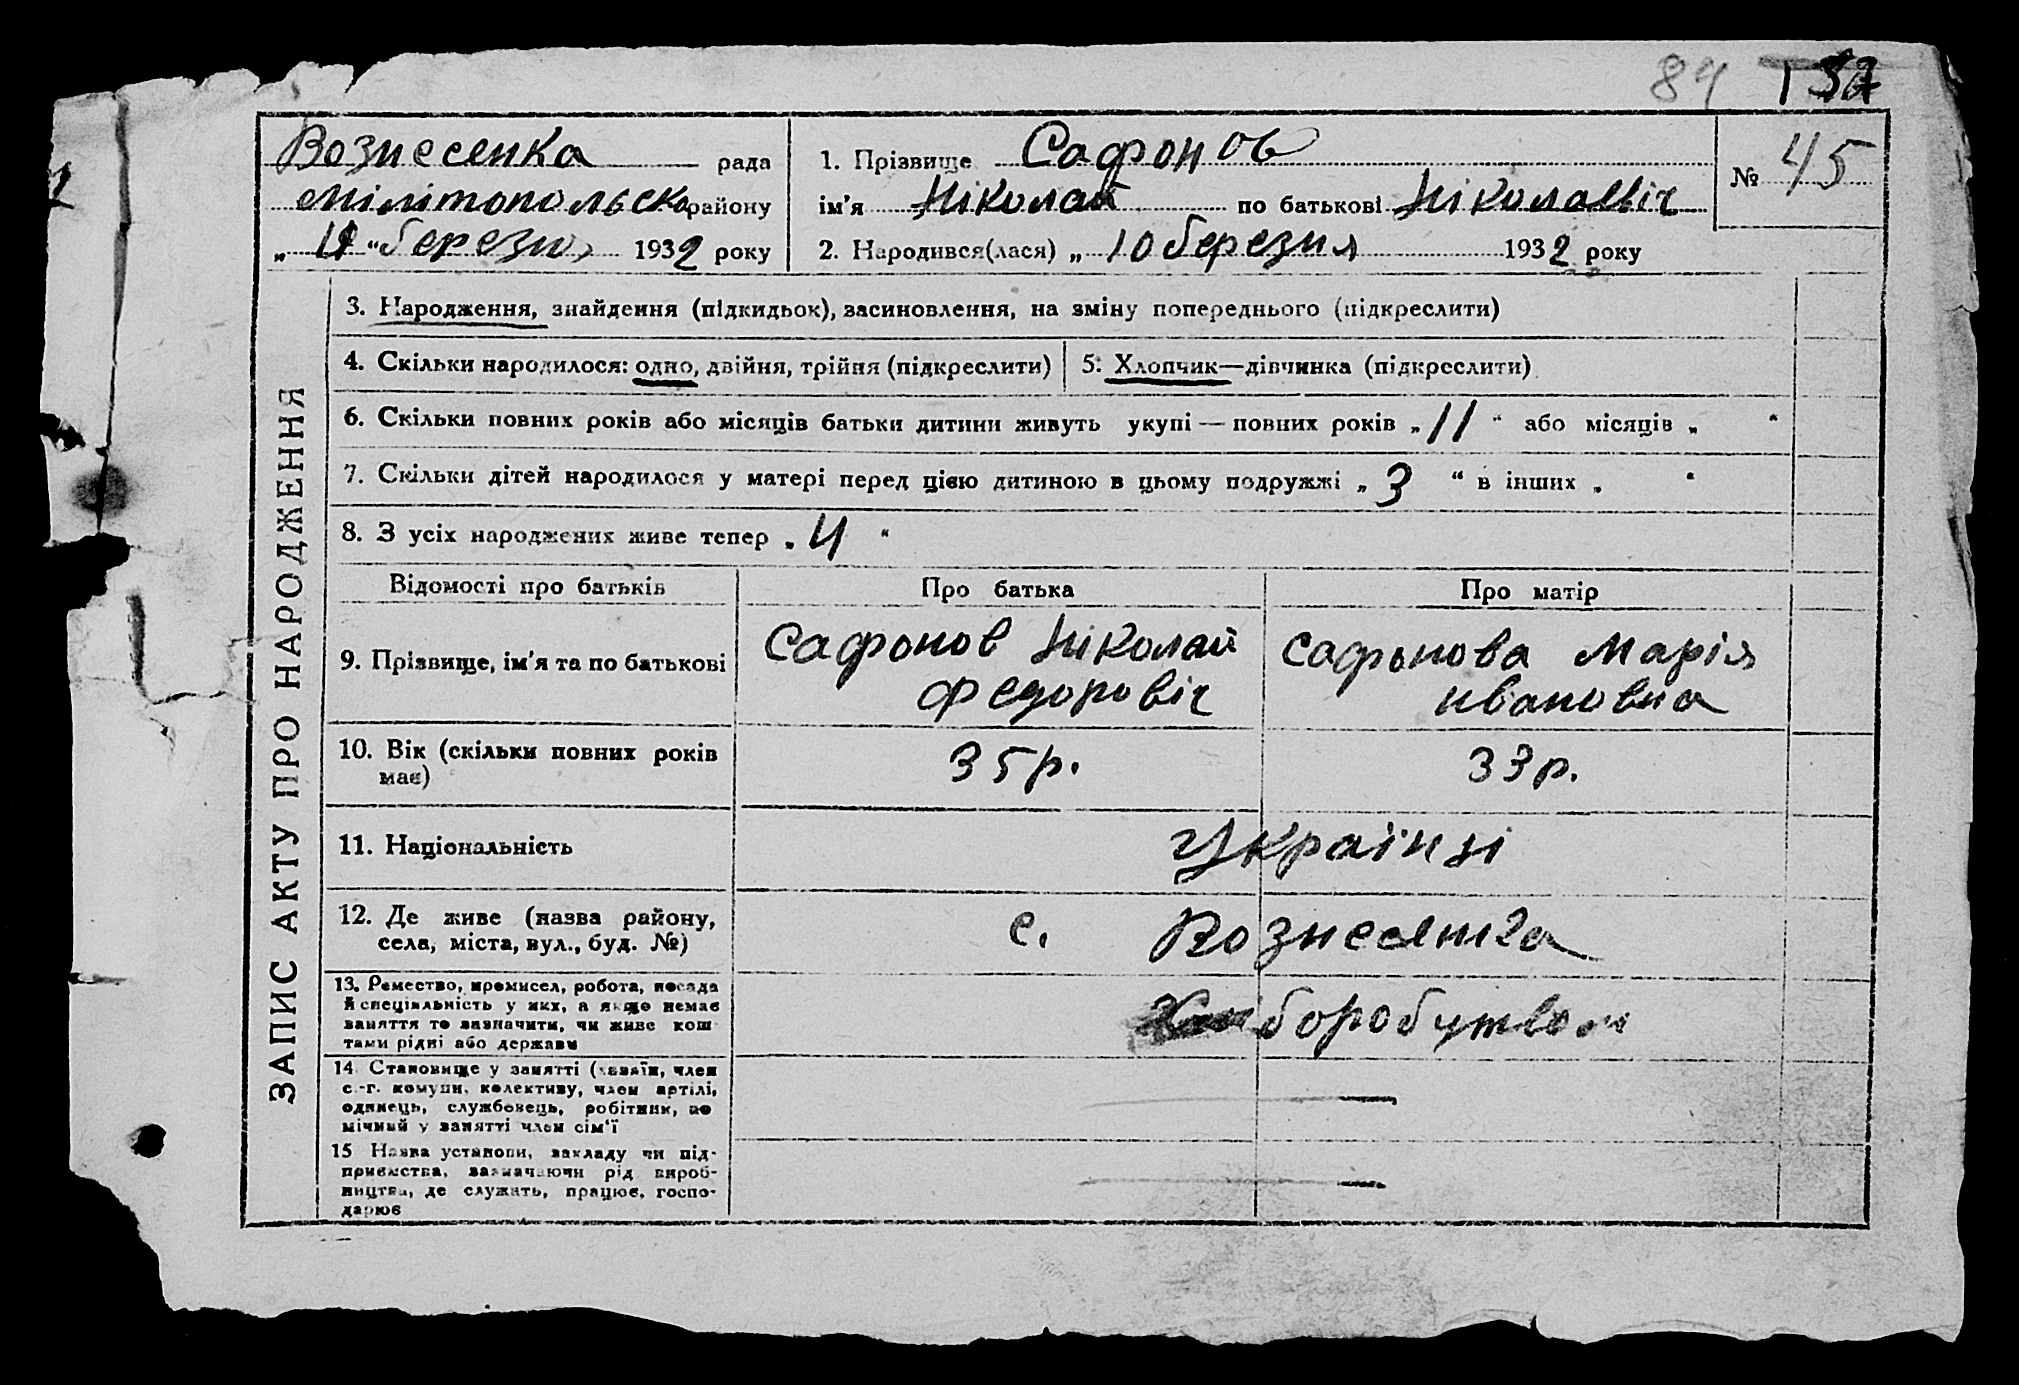 84
Вознесенка рада
Мілітопольско району
„ “ березня 1932 року
1. Прізвище Сафонов
ім'я Ніколай по батькові Ніколаевіч
2. Народився(лася) „ 10 березня 1932 року
№ 45
ЗАПИС АКТУ ПРО НАРОДЖЕННЯ
3. Народження, знайдення (підкидьок), засиновлення, на зміну попереднього (підкреслити)
4. Скільки народилося: одно, двійня, трійня (підкреслити)
5. Хлопчик—дівчинка (підкреслити)
6. Скільки повних років або місяців батьки дитини живуть укупі — повних років „ 11 “ або місяців „ “
7. Скільки дітей народилося у матері перед цією дитиною в цьому подружжі „ 3 “ в інших „ “
8. З усіх народжених живе тепер „ 4 “
Відомості про батьків
Про батька
Про матір
9. Прізвище, ім'я та по батькові
Сафонов Ніколай
Федоровіч
Сафонова Марія
Ивановна
10. Вік (скільки повних років
має)
35р.
33р.
11. Національність
Українці
12. Де живе (назва району,
села, міста, вул., буд. №)
с. Вознесенка
13. Ремество, промисел, робота, посада
й спеціяльність у них, а якщо немає
заняття то зазначити, чи живе кош
тами рідні або держави
боробутвом
14. Становище у занятті (хазяїн, член
с.-г. комуни, колективу, член артілі,
одинець, службовець, робітник, по
мічний у занятті член сім'ї
15 Назва установи, закладу чи під-
приємства, зазначаючи рід вироб-
ництва, де служить, працює, госпо-
дарює